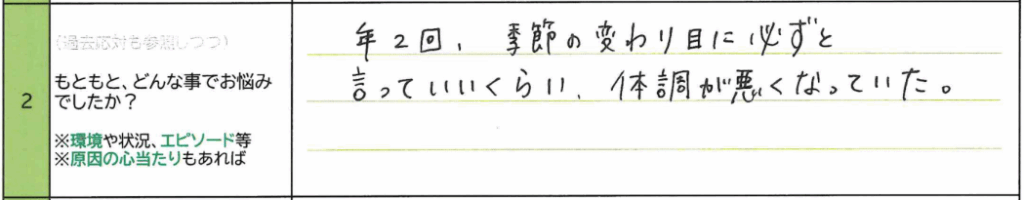 2
(過去応対も参照しつつ)
もともと、どんな事でお悩み
でしたか？
※環境や状況、エピソード等
※原因の心当たりもあれば
年2回、季節の変わり目に必ずと
言っていいくらい、体調が悪くなっていた。